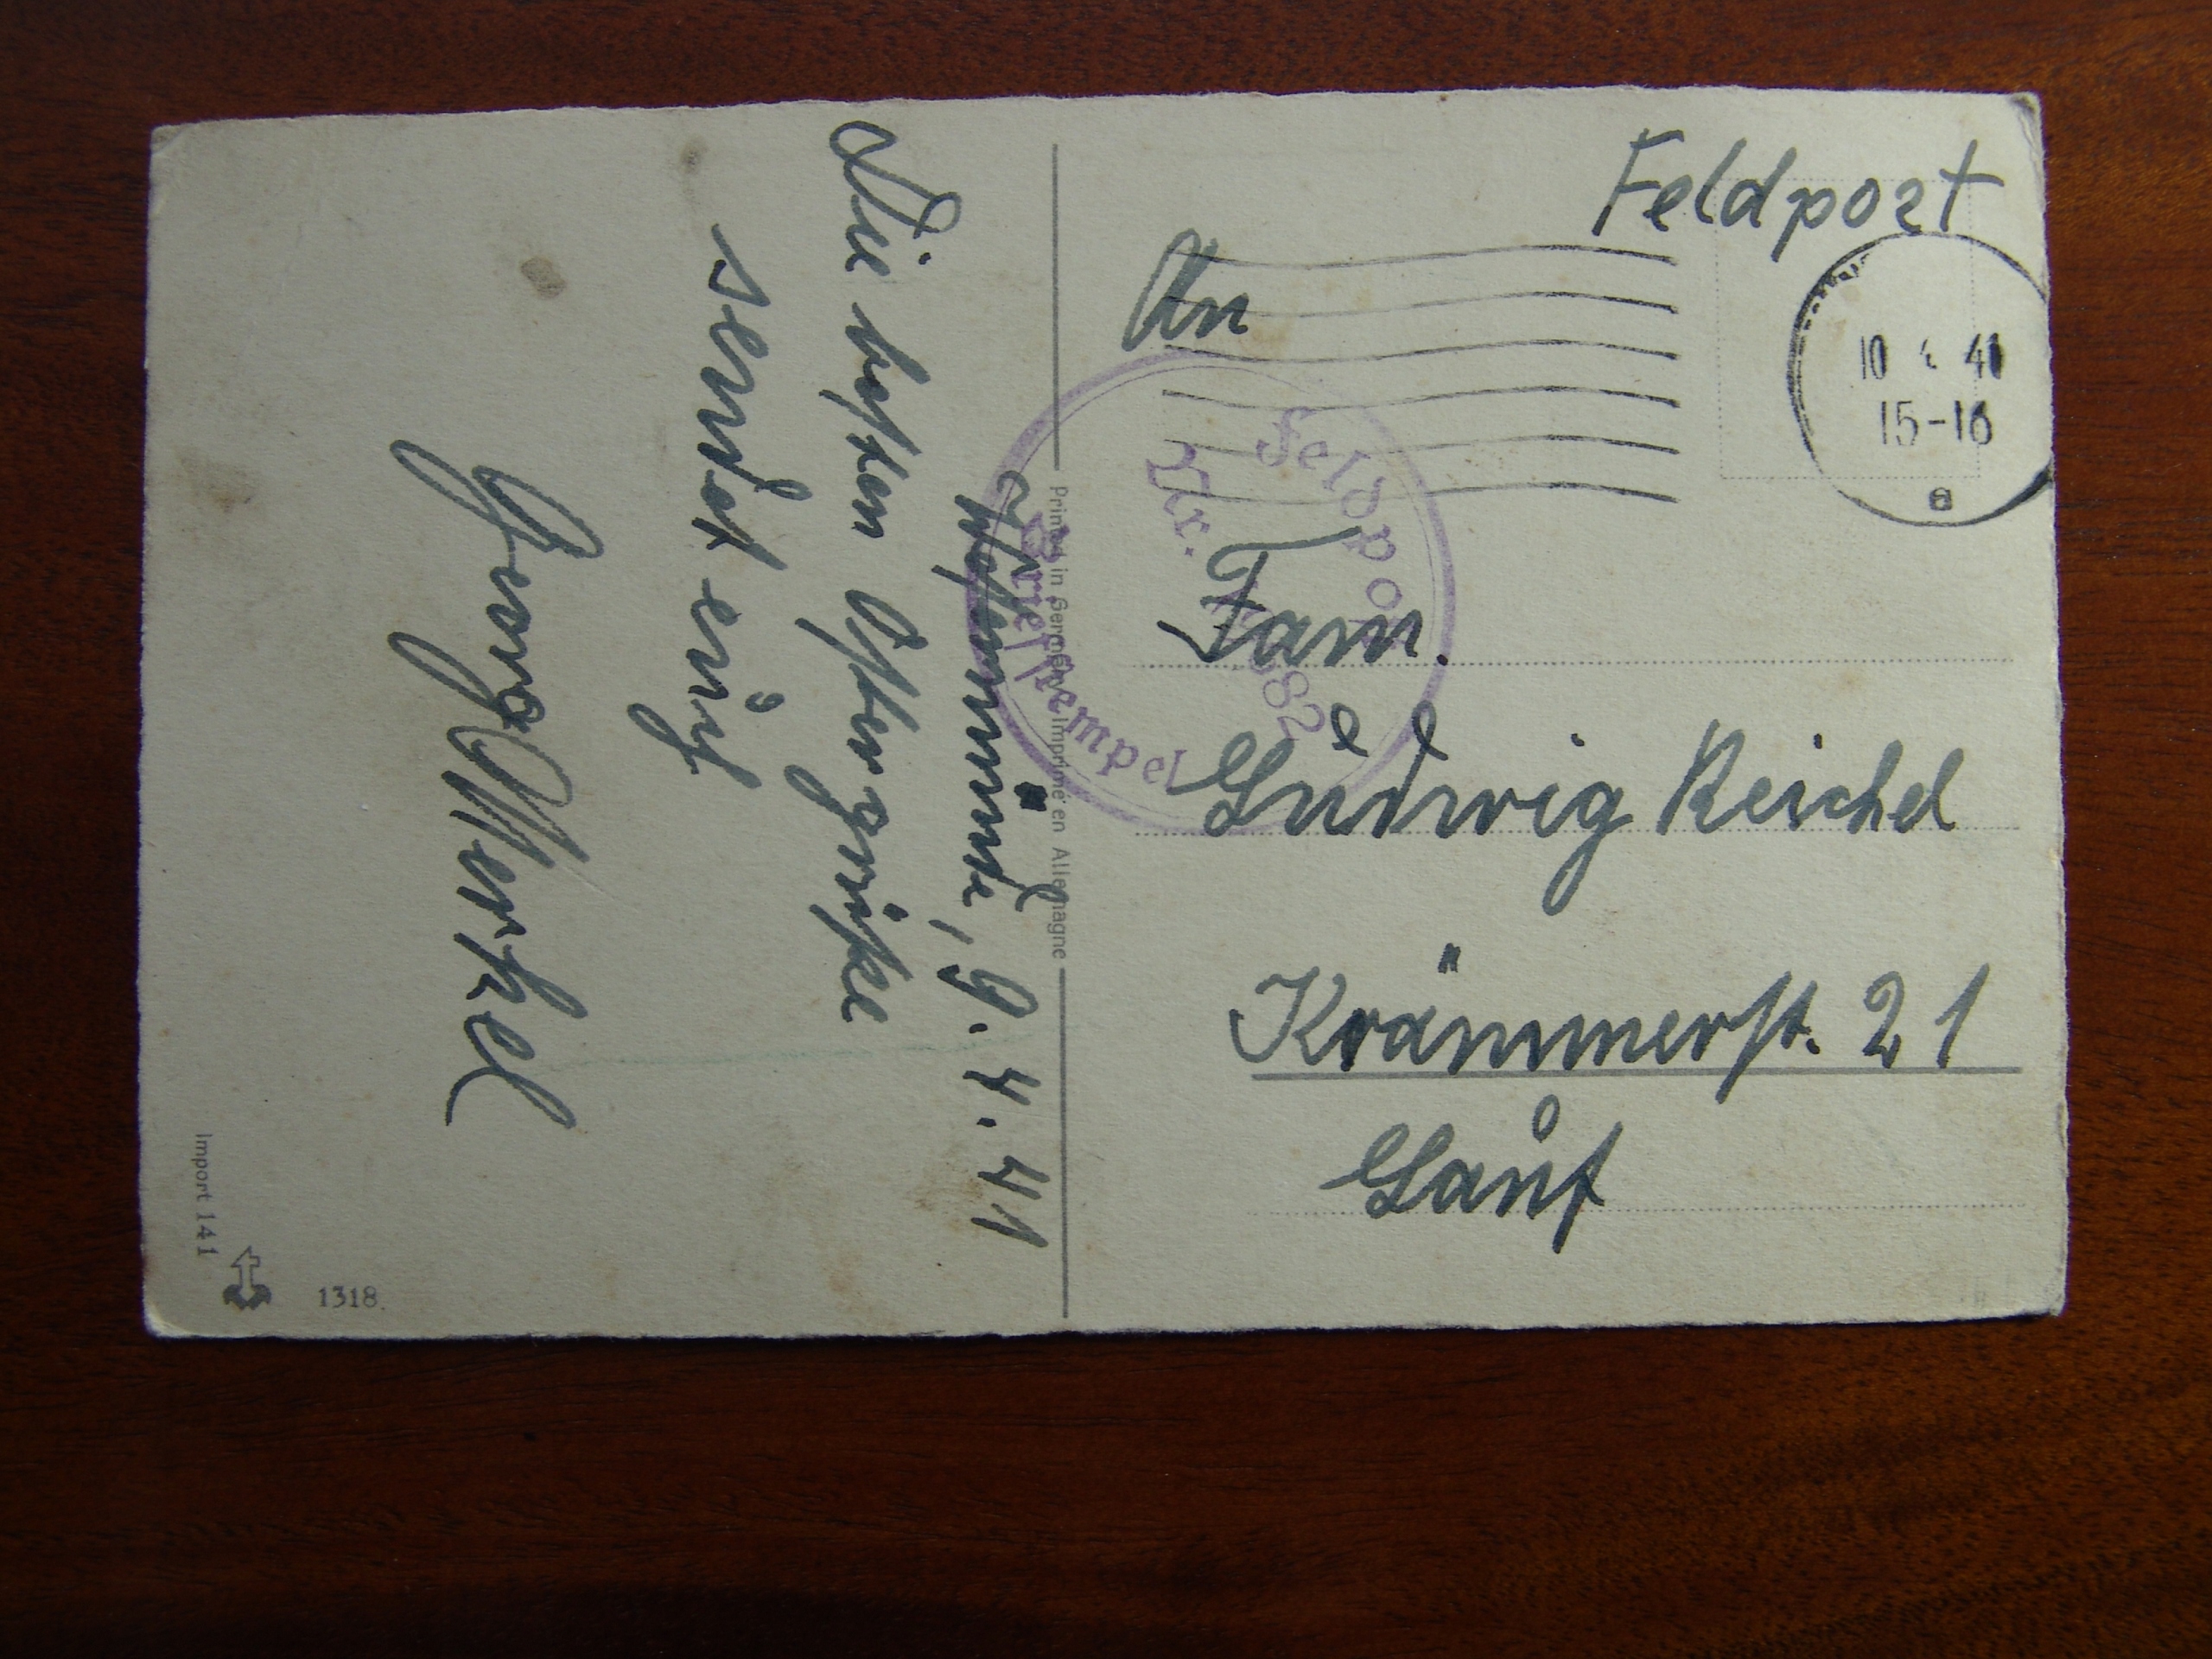 Feldpost
10 4 41
15-16
a
An
Fam.
Ludwig Reichel
Krämmerst. 21
Lauf
Feldpost
Nr.
Briefstempel
Printed in Germany Imprimé en Allemagne
9. 4. 41
Die besten Ostergrüße
sendet euch
Georg Merkel
Import 141
1318.